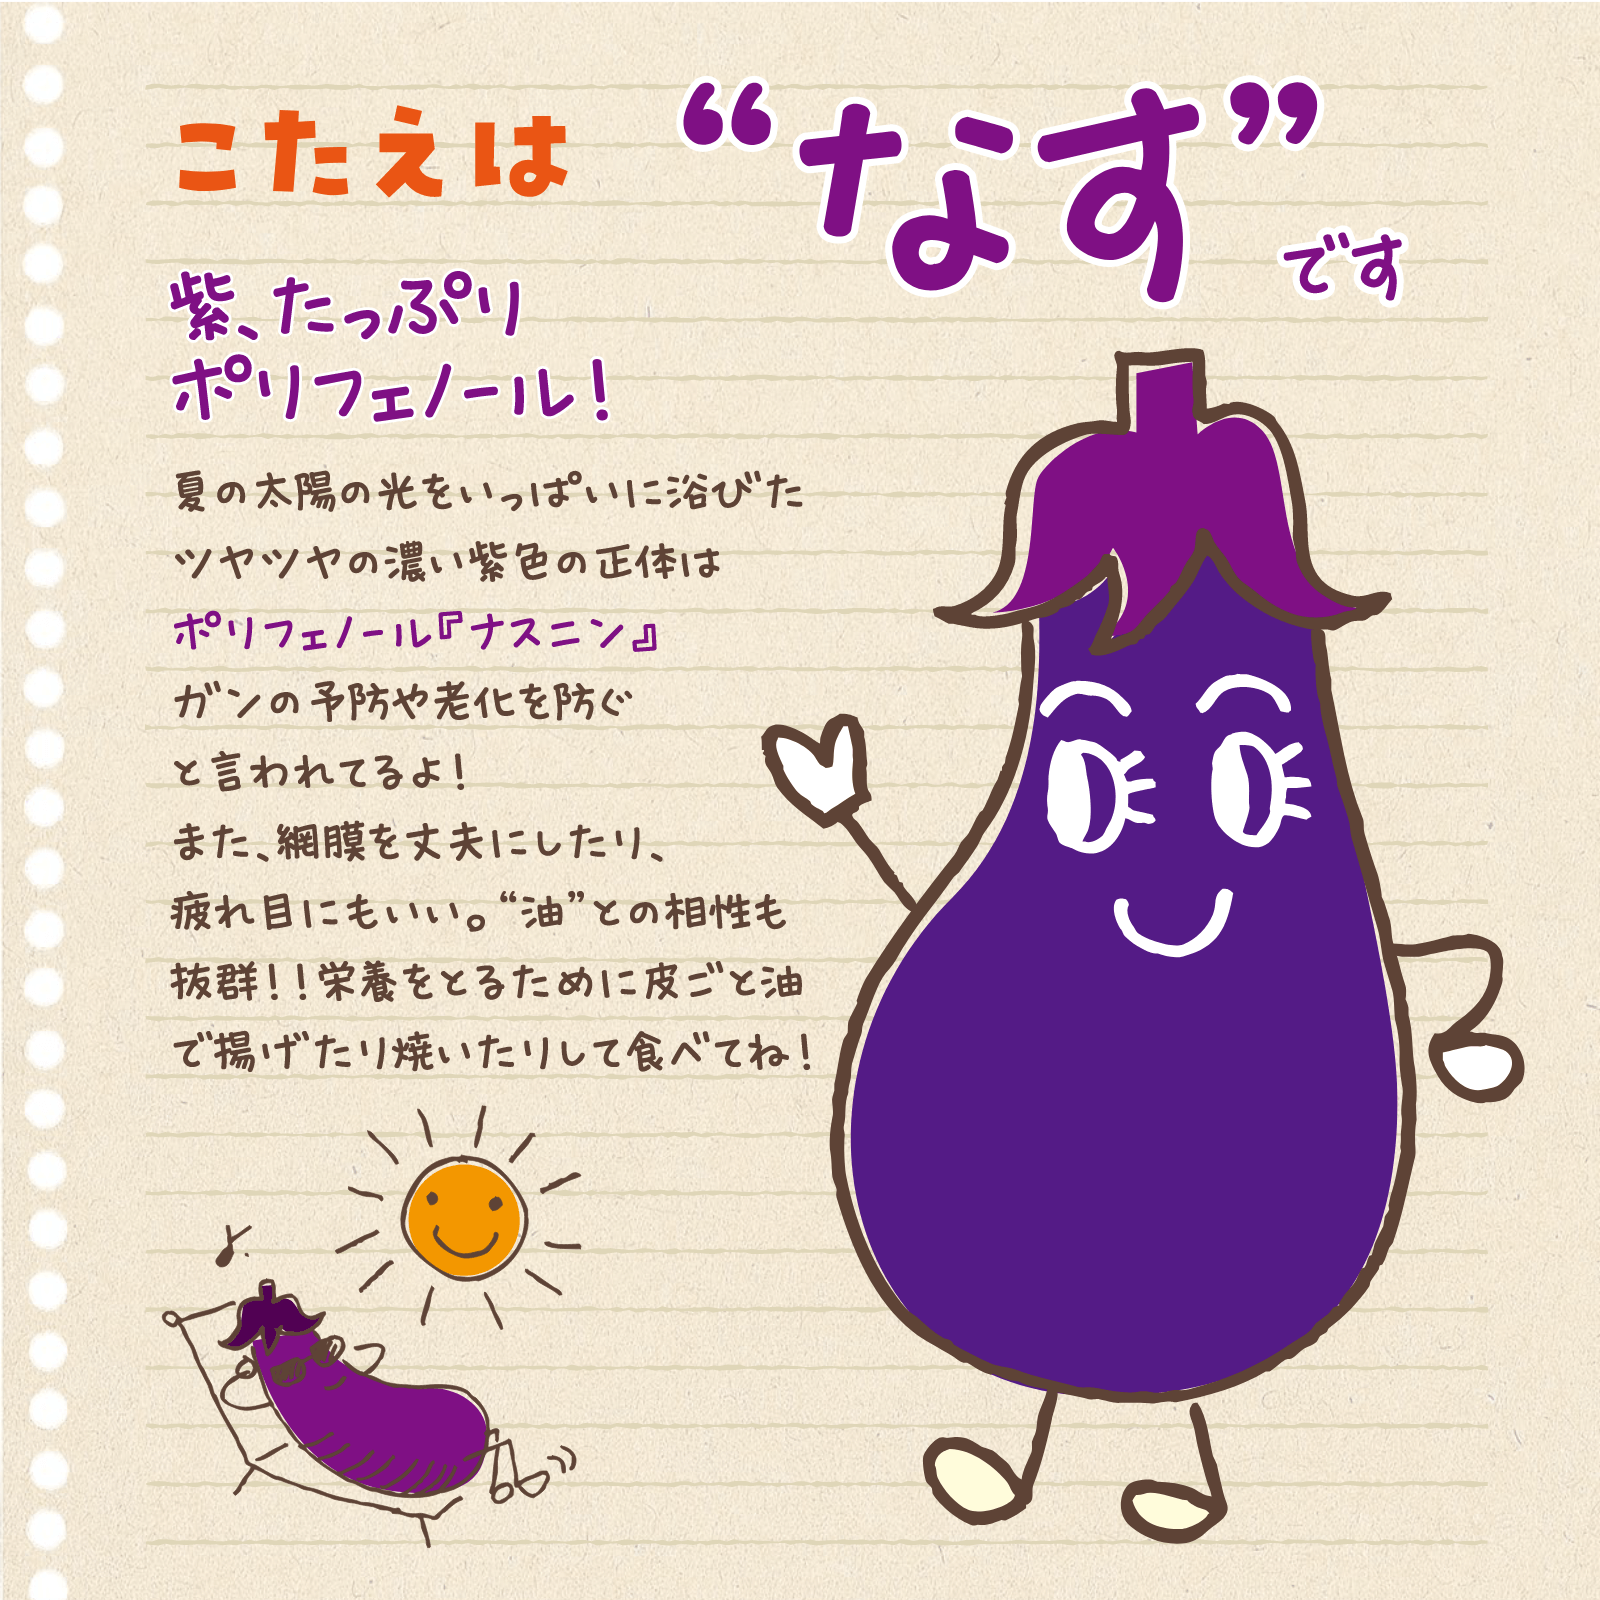 こたえは “なす”です
紫、たっぷり
ポリフェノール！
夏の太陽の光をいっぱいに浴びた
ツヤツヤの濃い紫色の正体は
ポリフェノール『ナスニン』
ガンの予防や老化を防ぐ
と言われてるよ！
また、網膜を丈夫にしたり、
疲れ目にもいい。“油”との相性も
抜群！！栄養をとるために皮ごと油
で揚げたり焼いたりして食べてね！